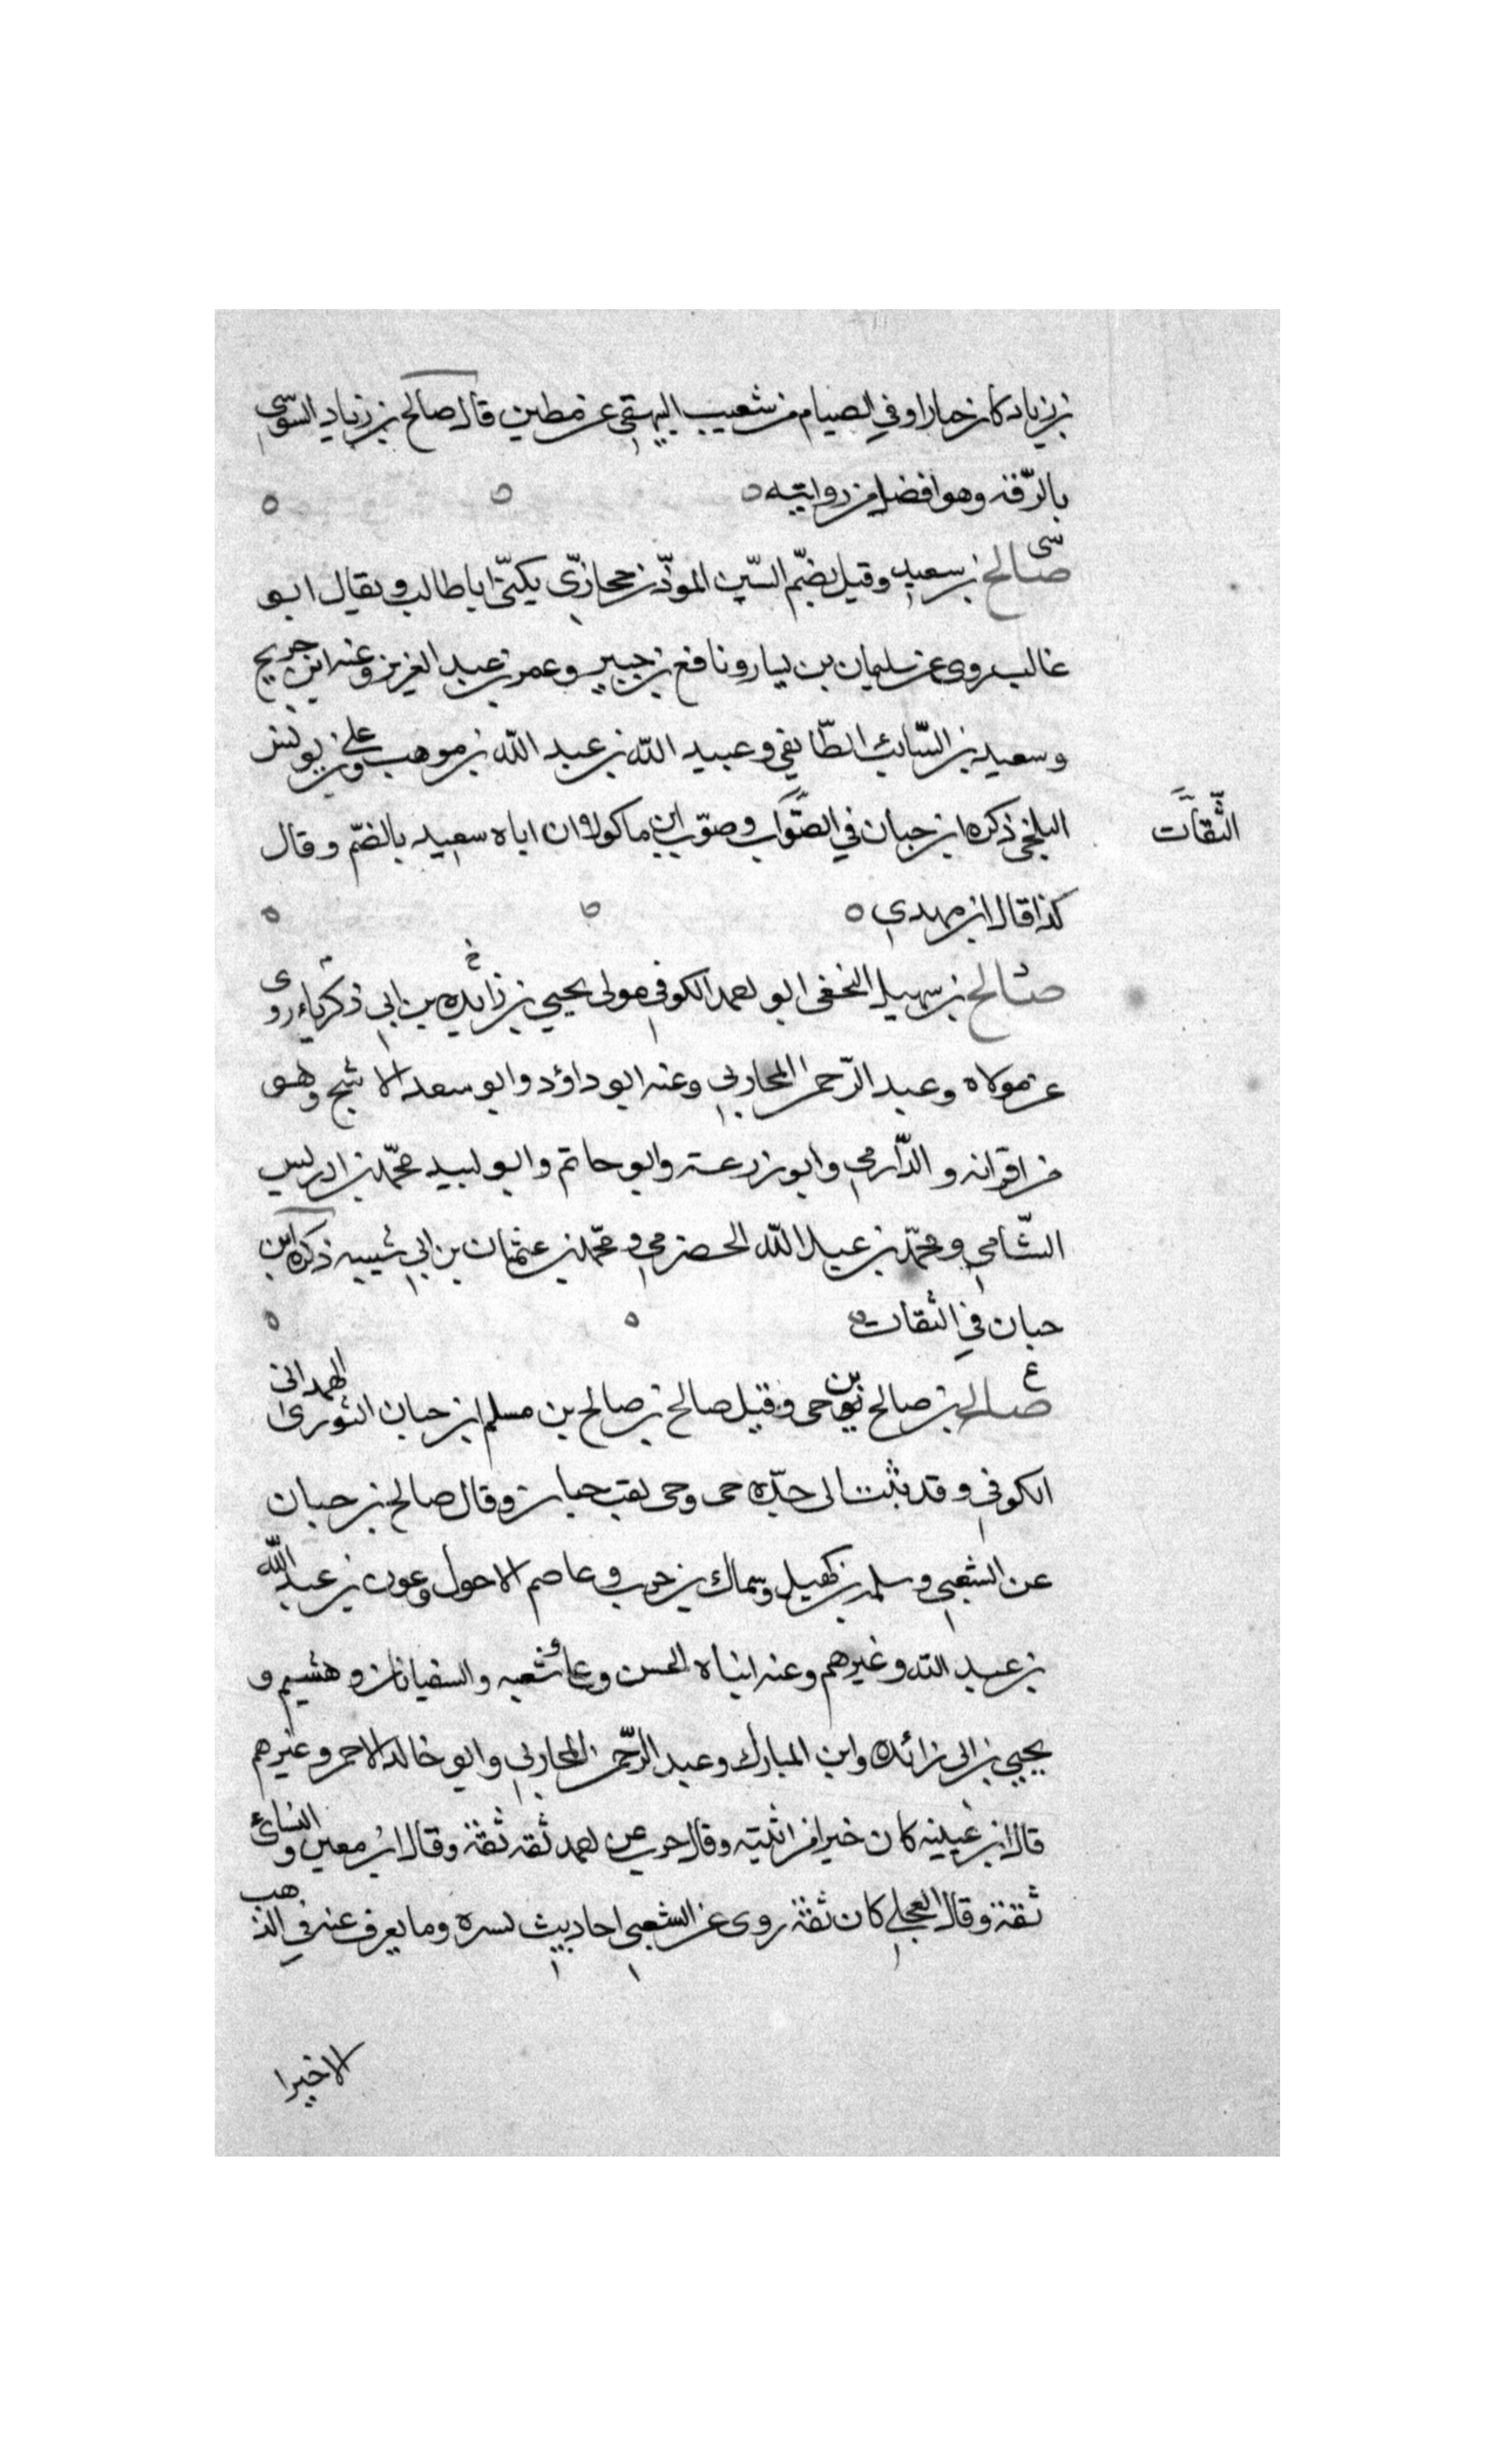 بن زياد كان خبازا وفي الصيام من شعيب البيهقي عن مطين قال صالح بن زياد السوسي
بالرّقة وهو افضل من روايتيه
سى
صالح بن سعيد وقيل بضمّ السّين الموذّن حجازيّ يكنّى ابا طالب ويقال ابو
غالب روى عن سليمان بن يسار ونافع بن جبير وعمر بن عبد العزيز وعنه ابن جريج
وسعيد بن السّائب الطّايفي وعبيد الله بن عبد الله بن موهب وعلي بن يونس
البلخي ذكره ابن حبان في الصّواب وصوّب ابن ماكولا ان اباه سعيد بالضمّ وقال
الثّقات
كذا قال ابن مهدي
صالح بن سهيل النخعي ابو احمد الكوفي مولى يحيي بن زائده بن ابي زكرياء روى
عن مولاه وعبد الرّحمن المحاربي وعنه ابو داؤد وابو سعد الاشج وهو
من اقرانه والدّارمي وابو زرعة وابو حاتم وابو لبيد محمّد بن ادريس
الشّامي ومحمّد بن عبد الله الحضرمي ومحمّد بن عثمان بن ابي شيبه ذكره ابن
حبان في الثقات
ع
صالح بن صالح بن حى وقيل صالح بن صالح بن مسلم ابن حبان الثورى الهمدانى
الكوفي وقد ثبت الى جدّه حى وحى لقب حيان وقال صالح بن حبان
عن الشعبي وسلمه بن كهيل وسماك بن حرب وعاصم الاحول وعون بن عبد الله
بن عبد الله وغيرهم وعنه ابناه الحسن وعلى وشعبه والسفيانان وهشيم و
يحيي بن ابى زائده وابن المبارك وعبد الرّحمن المحاربي وابو خالد الاحمر وغيرهم
قال ابن عيينه كان خيرا من ابنيه وقال حرب عن احمد ثقه ثقة وقال ابن معين والنسائي
ثقة وقال العجلي كان ثقة روى عن الشعبي احاديث يسره وما يعرف عنه في الذهب
الاخيرا